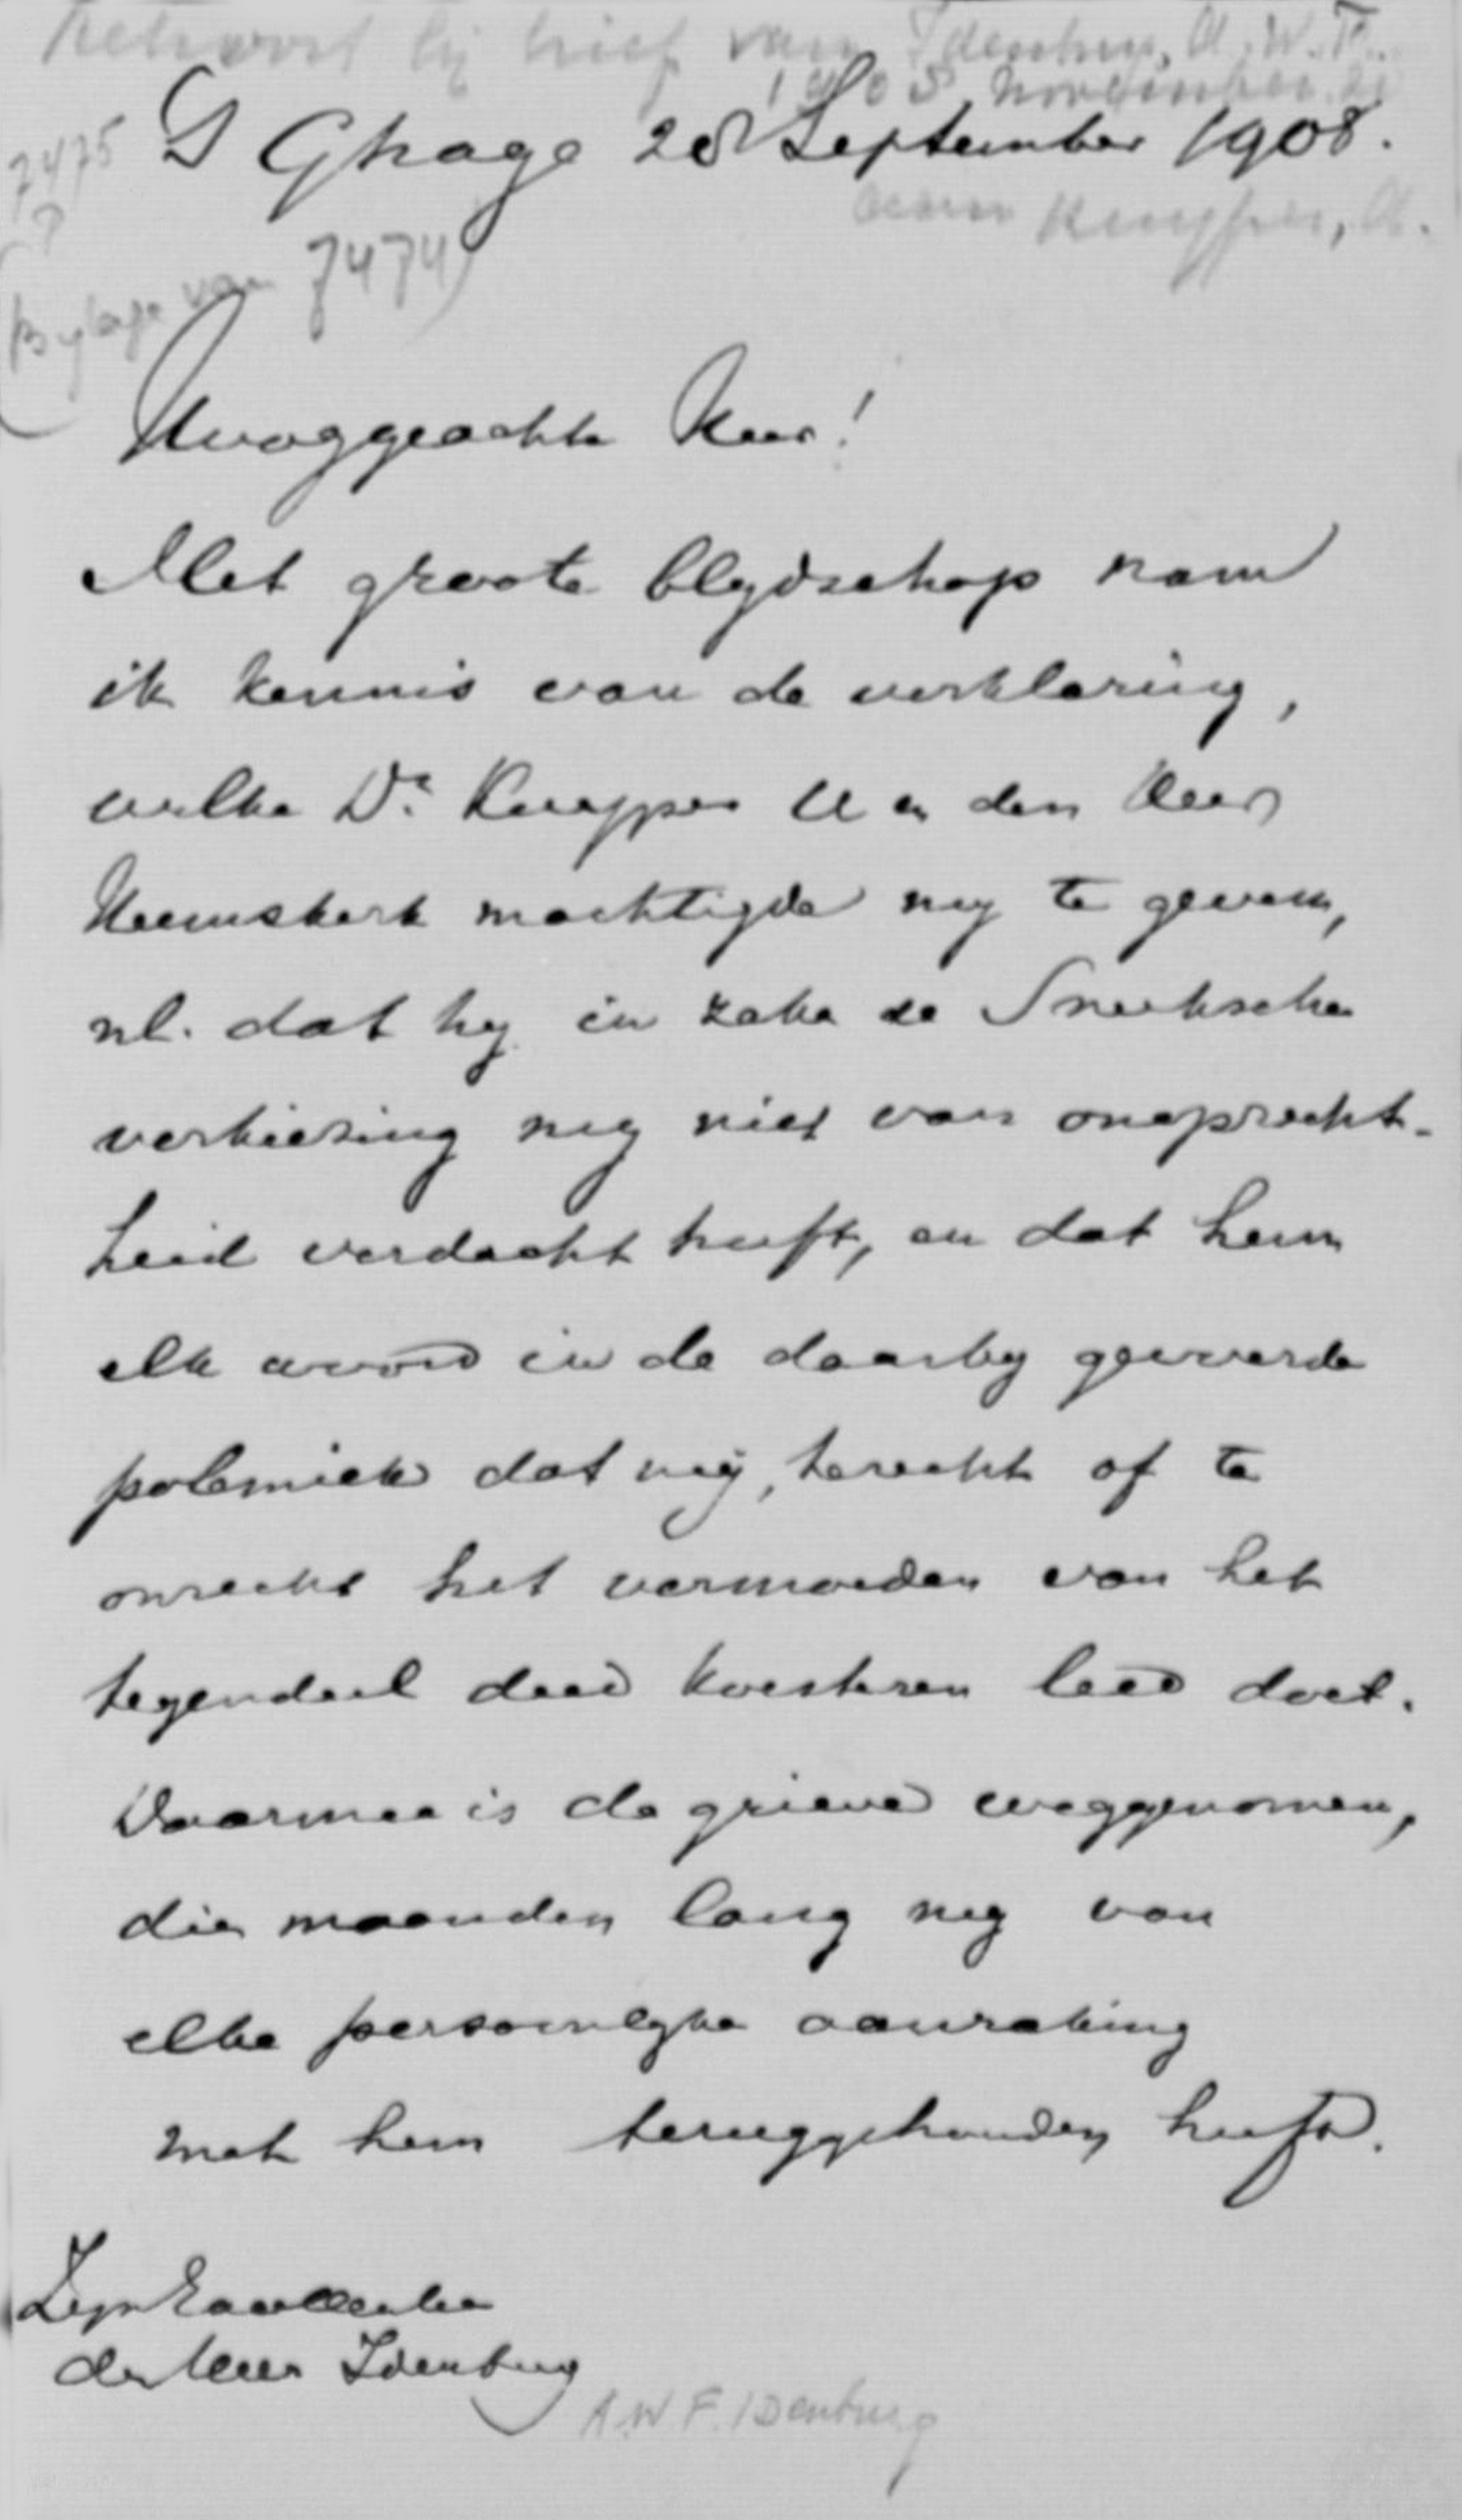 behoort bij brief van Idenburg, A.W.F.
1908 november 21
7475
S Ghage 28 September 1908.
?
aan Kuyper, A.
(Bylage van 7474)
Hooggeachte Heer!
Met groote blydschap nam
ik kennis van de verklaring,
welke Dr. Kuyper U en den Heer
Heemskerk machtigde my te geven,
nl. dat hy in zake de Sneeksche
verkiezing my niet van onoprecht-
heid verdacht heeft, en dat hem
elk woord in de daarby gevoerde
polemiek dat mij, terecht of te
onrecht het vermoeden van het
tegendeel deed koesteren leed doet.
Daarmee is de grieve weggenomen,
die maanden lang my van
elke persoonlyke aanraking
met hem teruggehouden heeft.
Zyn Excellentie
den Heer Idenburg
A.W.F. IDenburg